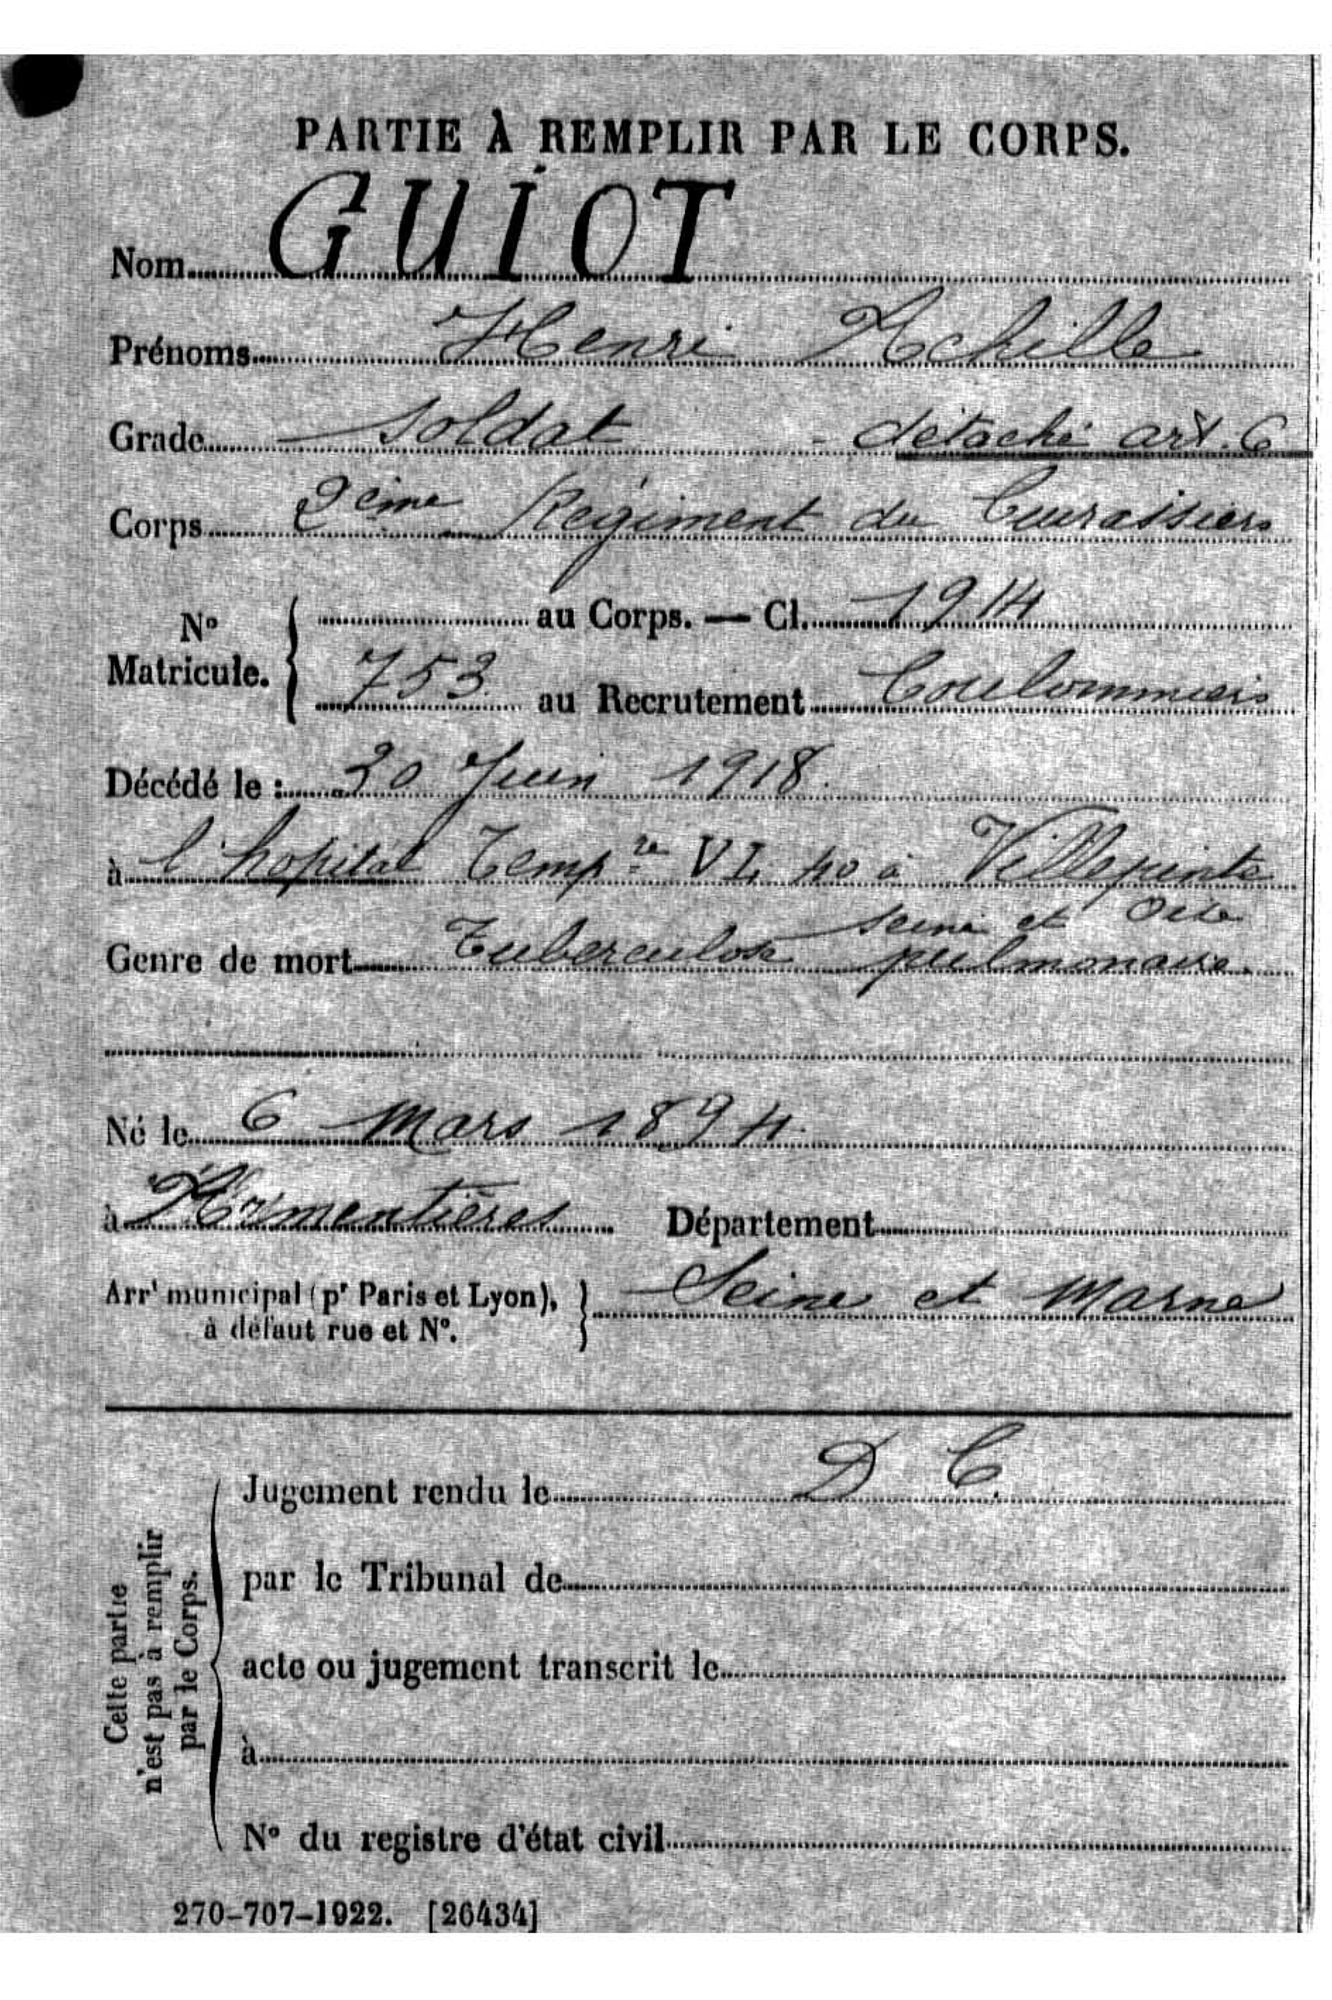 PARTIE À REMPLIR PAR LE CORPS.
Nom GUIOT
Prénoms Henri Achille
Grade soldat - détaché art. 6
Corps 2eme Régiment du Cuirassiers
N° Matricule. { au Corps. — Cl. 1914
753 au Recrutement Coulommiers
Décédé le : 30 Juin 1918
à l'hopital Tempre VL 40 à Villepinte
seine et Oise
Genre de mort Tuberculose pulmonaire
Né le 6 Mars 1894
à Armentières Département
Arrt municipal (pr Paris et Lyon), à défaut rue et N°. } Seine et Marne
Jugement rendu le D C.
par le Tribunal de
acte ou jugement transcrit le
à
N° du registre d'état civil
Cette partie n'est pas à remplir par le Corps.
270-707-1922. [26434]